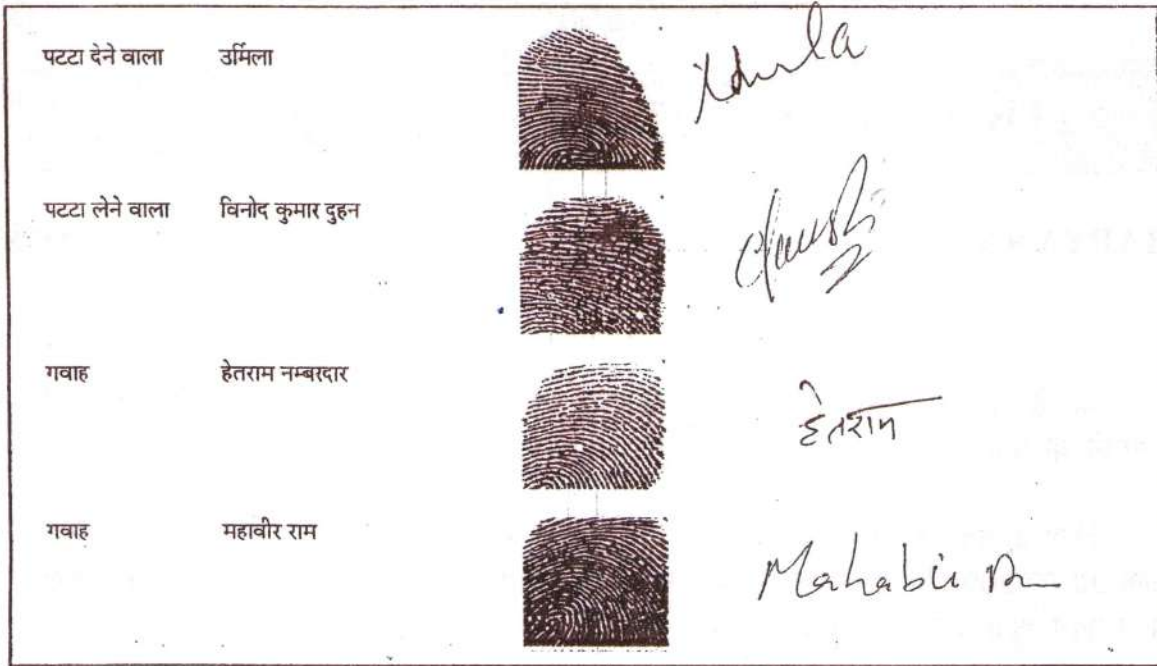 पटटा देने वाला उर्मिला
पटटा लेने वाला विनोद कुमार दुहन
गवाह हेतराम नम्बरदार हेतराम
गवाह महावीर राम Mahabir